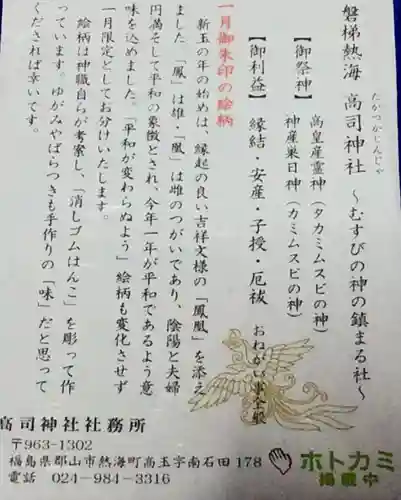 磐梯熱海 高司神社 ～むすびの神の鎮まる社～
たかつかじんじゃ
【御祭神】 高皇産霊神(タカミムスビの神)
神産巣日神(カミムスビの神)
【御利益】 縁結・安産・子授・厄祓 おねがい事全般
一月御朱印の絵柄
新玉の年の始めは、縁起の良い吉祥文様の「鳳凰」を添え
ました。「鳳」は雄・「凰」は雌のつがいであり、陰陽と夫婦
円満そして平和の象徴とされ、今年一年が平和であるよう意
味を込めました。「平和が変わらぬよう」絵柄も変化させず
一月限定としてお分けいたします。
絵柄は神職自らが考案し、「消しゴムはんこ」を彫って作
っています。ゆがみやばらつきも手作りの「味」だと思って
くだされば幸いです。
高司神社社務所
〒963-1302
福島県郡山市熱海町高玉字南石田178
電話 024-984-3316
ホトカミ
掲載中